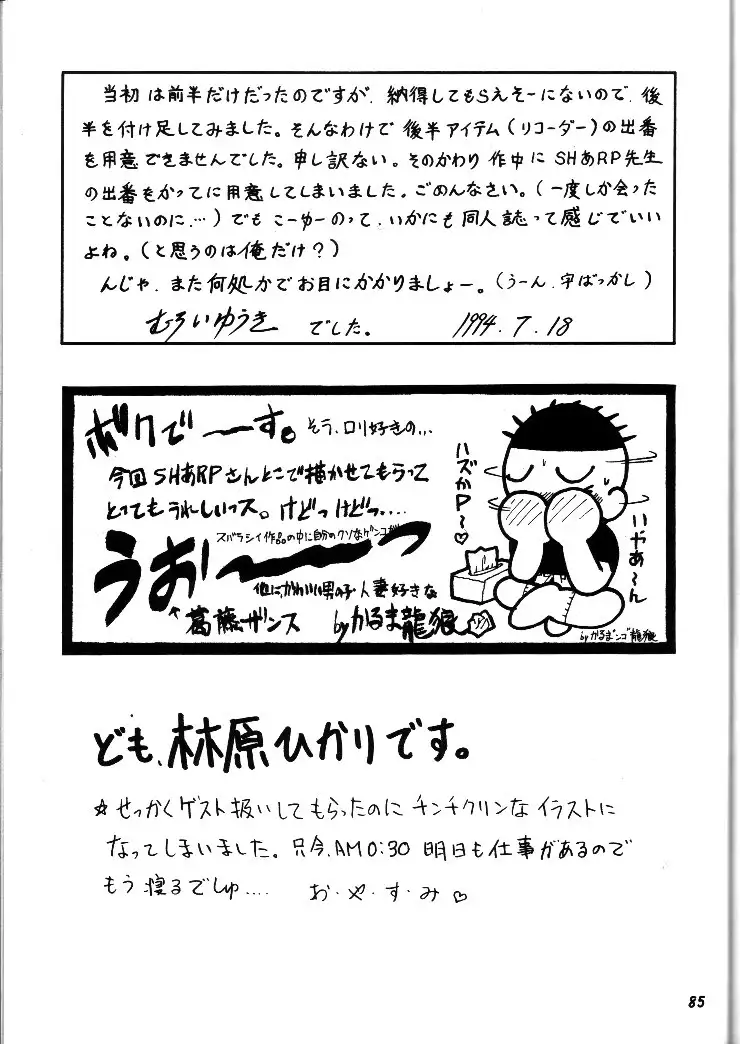 当初は前半だけだったのですが、納得してもらえそーにないので、後
半を付け足してみました。そんなわけで後半アイテム(リコーダー)の出番
を用意できませんでした。申し訳ない。そのかわり作中にSHあRP先生
の出番をかってに用意してしまいました。ごめんなさい。(一度しか会った
ことないのに…)でもこーゆーのって、いかにも同人誌って感じでいい
よね。(と思うのは俺だけ?)
んじゃ、また何処かでお目にかかりましょー。(うーん、字ばっかし)
むろいゆうき でした。 1994.7.18
ボクで〜〜す。そう、ロリ好きの…
今回SHあRPさんとこで描かせてもらって
とってもうれしいっス。けどっけどっ….
スバラシイ作品の中に自分のクソなゲンコが
うお〜〜っ
他に、かわいい男の子・人妻好きな
葛藤ザンス byかるま龍狼
ハズかP〜♡
いやあ〜ん
byかるまンゴ龍狼
ども、林原ひかりです。
☆せっかくゲスト扱いしてもらったのにチンチクリンなイラストに
なってしまいました。只今、AM0:30 明日も仕事があるので
もう寝るでしゅ…. お・や・す・み♡
85